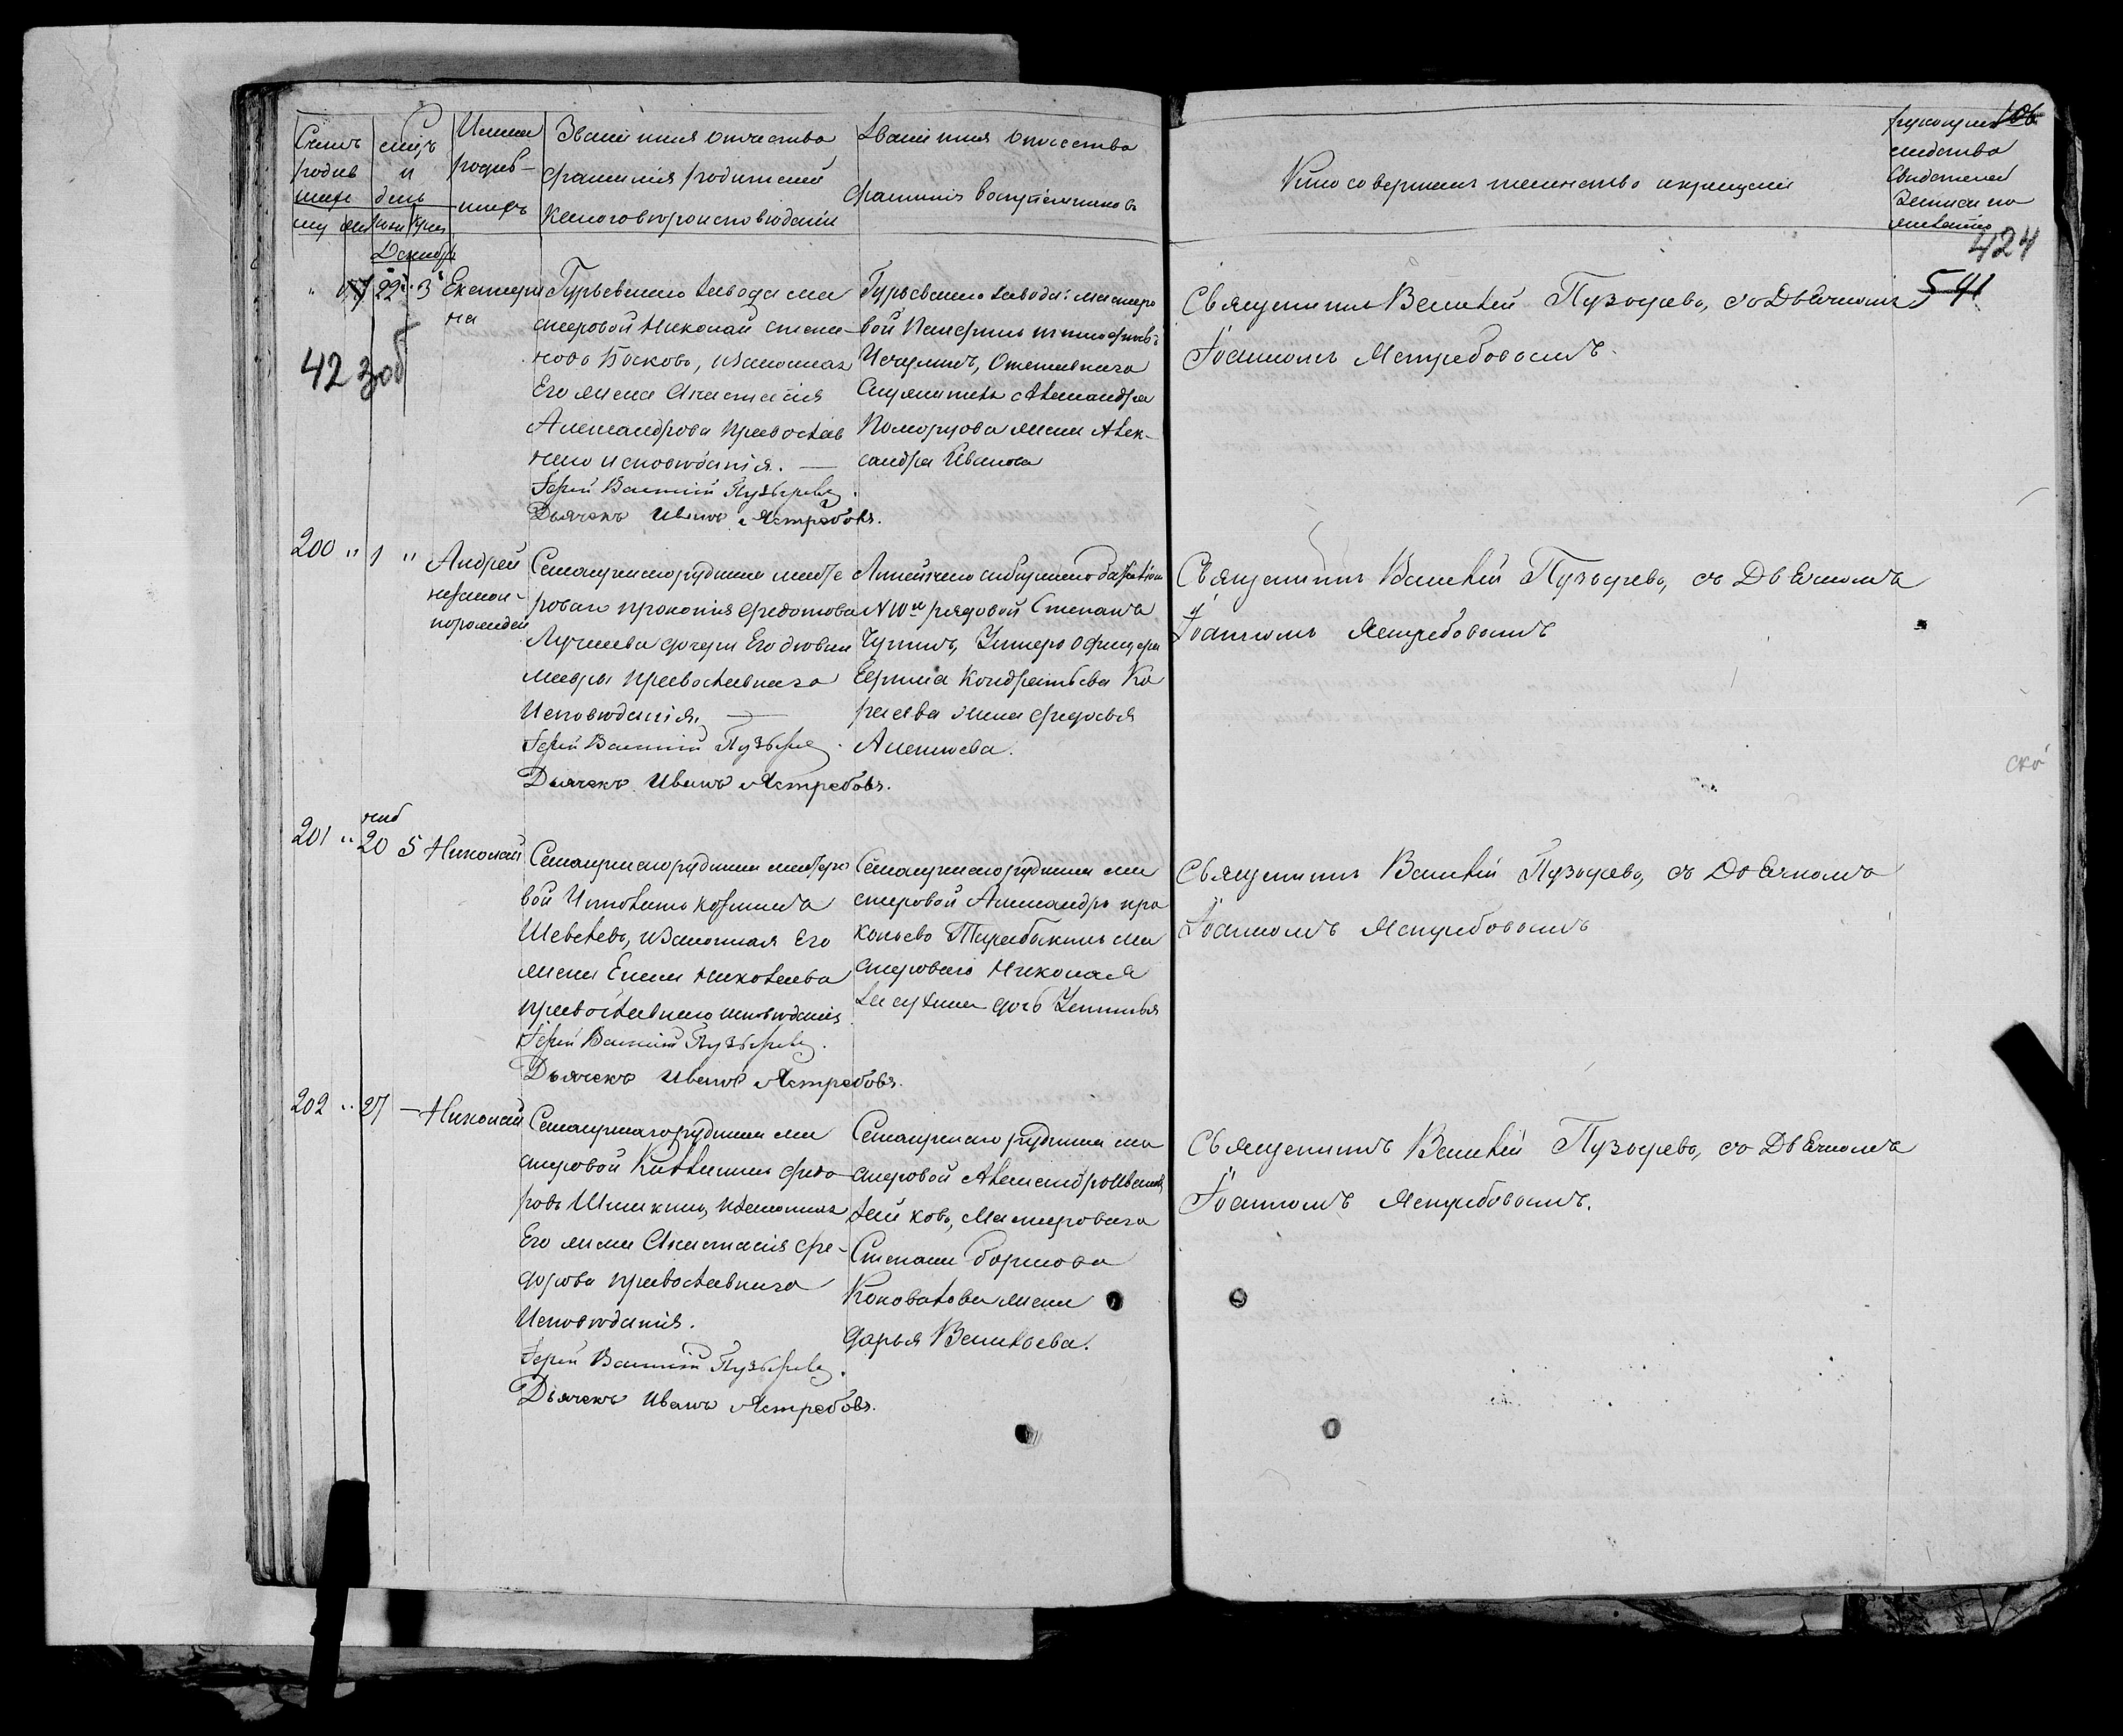 Имена
родив-
шихъ
Званіе имя отчество
фамилія родителей
Званіе имя отчество
фамилія воспріемниковъ
Кто совершилъ таинство крещенія
рукопри
106
свидетелей
записи по
желанію
424
541
Декабр
22 3 Екатери
на
42 3об
Гурьевскаго завода ма
стеровой Николай Степа-
новъ Басковъ, изаконная
Его жена Анастасія
Александрова православ
наго исповѣданія. —
Іерей Василій Пузыревъ.
Дьячекъ Иванъ Ястребовъ.
Гурьевскаго завода: мастеро
вой Памфилъ
Отставнаго
Александра
Поморцова жена Алек-
сандра Иванова
Священникъ Василій Пузыревъ, съ Дьячкомъ
Іоанномъ Ястребовымъ.
200 " 1 " Андрей
незакон-
норожден
Салаирскаго рудника
Прокопія Федотова
Лучшева дочери Его вдовы
Мавры православнаго
Исповѣданія. —
Іерей Василій Пузырев.
Дьячекъ Иванъ Ястребовъ.
Линейнаго сибирскаго баталіон
N 10го рядовой Степанъ
Унтеръ Офицера
Кондратьева Ко
жена Федосья
Алексѣева.
Священникъ Василій Пузыревъ, съ Дьячкомъ
Іоанномъ Ястребовымъ
201 " 20 5 Николай
Салаирскаго рудника мастеро
вой Ипполитъ Козминъ
Шевелевъ, изаконная Его
жена Елена Николаева
православнаго исповѣданія
Іерей Василій Пузыревъ.
Дьячекъ Иванъ Ястребовъ.
Салаирскаго рудника ма
стеровой Александръ Про
копьевъ Тарабыкинъ ма
стероваго Николая
дочь Устинья
Священникъ Василій Пузыревъ, съ Дьячкомъ
Іоанномъ Ястребовымъ
202 " 27 — Николай
Салаирскаго рудника ма
стеровой Федо
ровъ Шишкинъ, изаконная
Его жена Анастасія Фе-
дорова православнаго
Исповѣданія.
Іерей Василій Пузыревъ.
Дьячекъ Иванъ Ястребовъ.
Салаирскаго рудника ма
стеровой Александръ Ивановъ
Зайковъ, Мастероваго
Степана Борисова
Коновалова жена
Дарья Васильева.
Священникъ Василій Пузыревъ, съ Дьячкомъ
Іоанномъ Ястребовымъ.